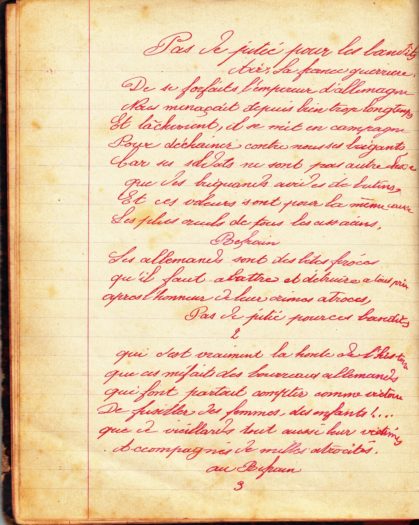 Pas de pitié pour les bandits
Air, La france guerriere
De se forfaits l'empereur d'allemagne
Nous menaçait depuis bien trop longtemps
Et lâchement, il se mit en campagne
Pour déchainer contre nous ses brigants
Car ses soldats ne sont pas autre chose
que des briguands avides de butins
Et ces voleurs sont pour la même cause
Les plus cruels de tous les assasins,
Refrain
Les allemands sont des bêtes féroces
qu'il faut abattre et détruire a tous prix
apres l'honneur de leur crimes atroces,
Pas de pitié pour ces bandits
2
qui c'est vraiment la honte de l'histoire
que ces mifait des bourreaux allemands
qui font partout compter comme victoire
De fusiller des femmes, des enfants!...
que de vieillards tout aussi leur victimes
Accompagnés de milles atrocités.
au Refrain
3